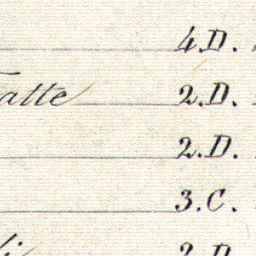 4.D.
atte 2.D.
2.D.
3.C.
2.D.